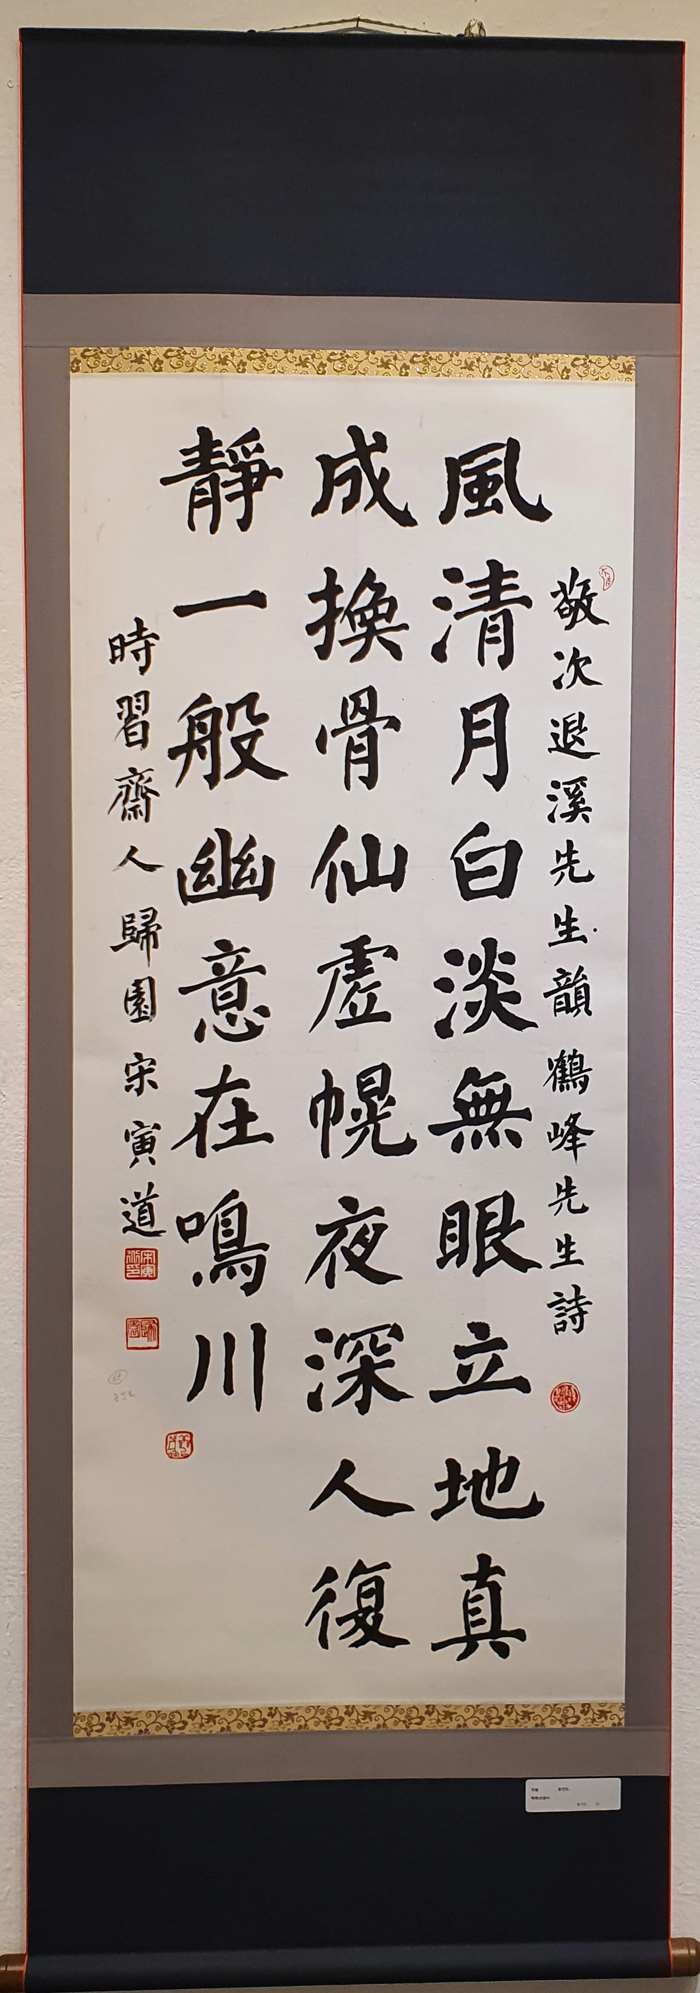 敬次退溪先生韻鶴峰先生詩
風清月白淡無眼立地真
成換骨仙虗幌夜深人復
靜一般幽意在鳴川
時習齋人歸園宋寅道